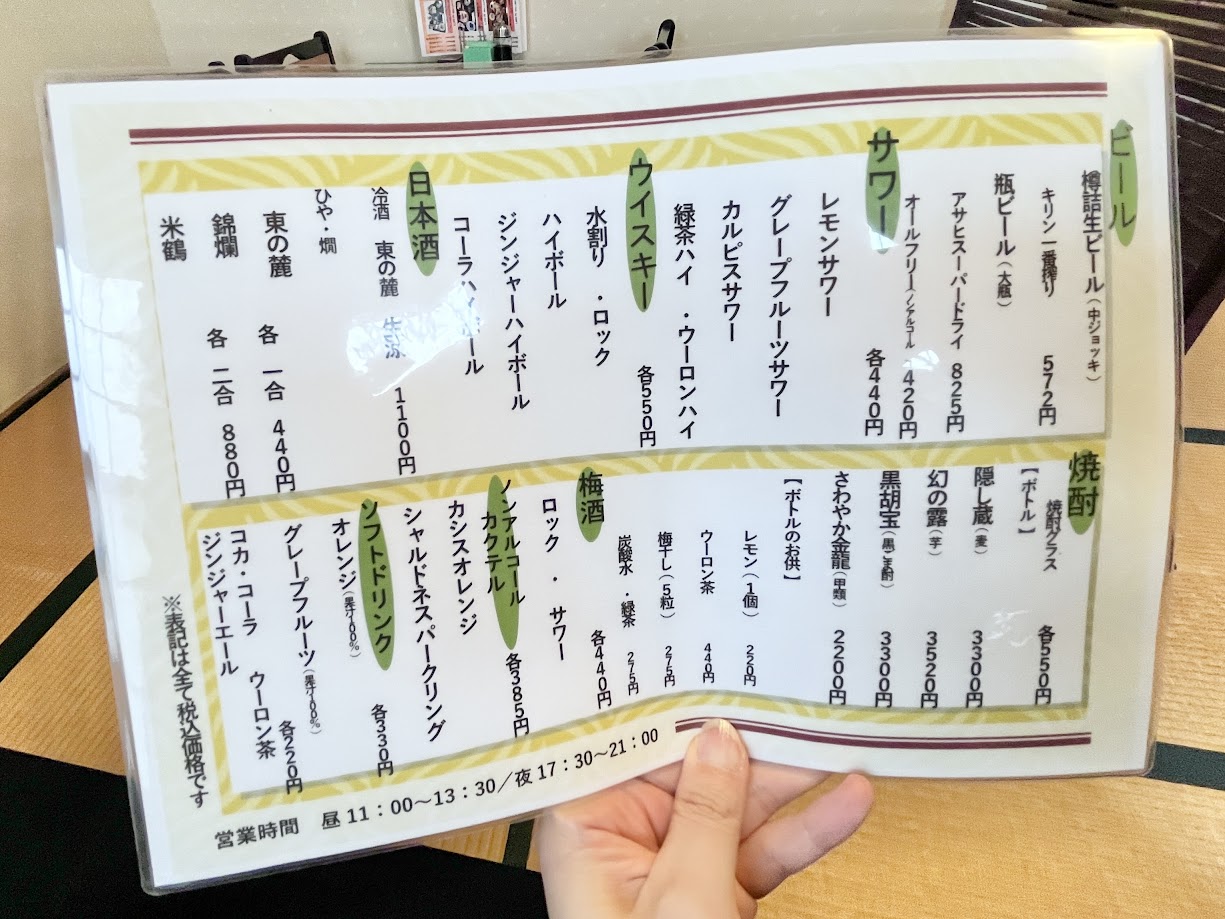 ビール
樽詰生ビール（中ジョッキ）
キリン一番搾り 572円
瓶ビール（大瓶）
アサヒスーパードライ 825円
オールフリー（ノンアルコール） 420円
サワー 各440円
レモンサワー
グレープフルーツサワー
カルピスサワー
緑茶ハイ ・ウーロンハイ
ウイスキー 各550円
水割り ・ロック
ハイボール
ジンジャーハイボール
コーラハイボール
日本酒
冷酒 東の麓 生涼 1100円
ひや・燗
東の麓 各 一合 440円
錦爛 各 二合 880円
米鶴
焼酎
焼酎グラス 各550円
【ボトル】
隠し蔵（麦） 3300円
幻の露（芋） 3520円
黒胡宝（黒ごま酎） 3300円
さわやか金龍（甲類） 2200円
【ボトルのお供】
レモン（1個） 220円
ウーロン茶 440円
梅干し（5粒） 275円
炭酸水 ・緑茶 275円
梅酒 各440円
ロック ・ サワー
ノンアルコール
カクテル 各385円
カシスオレンジ
シャルドネスパークリング
ソフトドリンク 各330円
オレンジ（果汁100%）
グレープフルーツ（果汁100%）
各220円
コカ・コーラ ウーロン茶
ジンジャーエール
※表記は全て税込価格です
営業時間 昼11：00～13：30／夜17：30～21：00